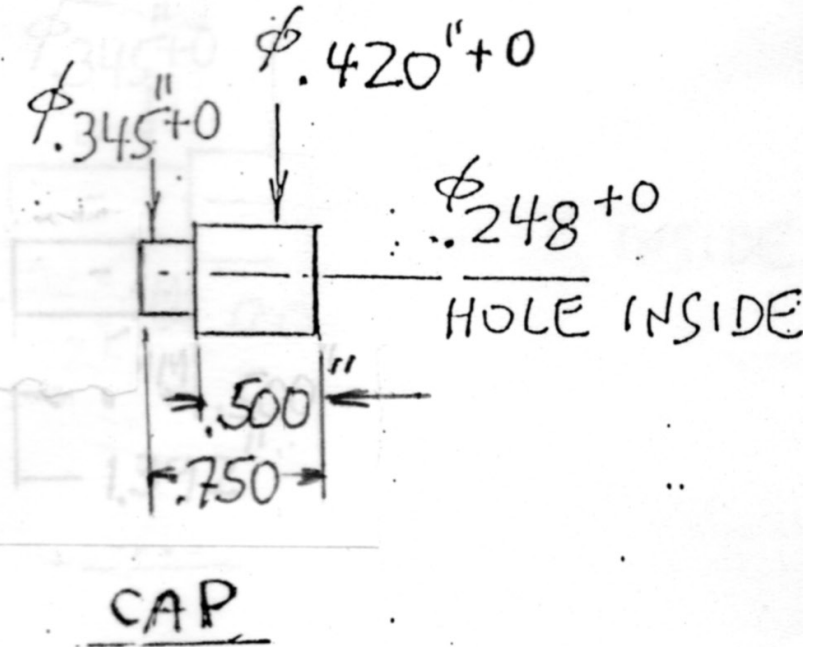 ϕ.420"+0
ϕ.345"+0
ϕ.248+0
HOLE INSIDE
.500"
.750
CAP